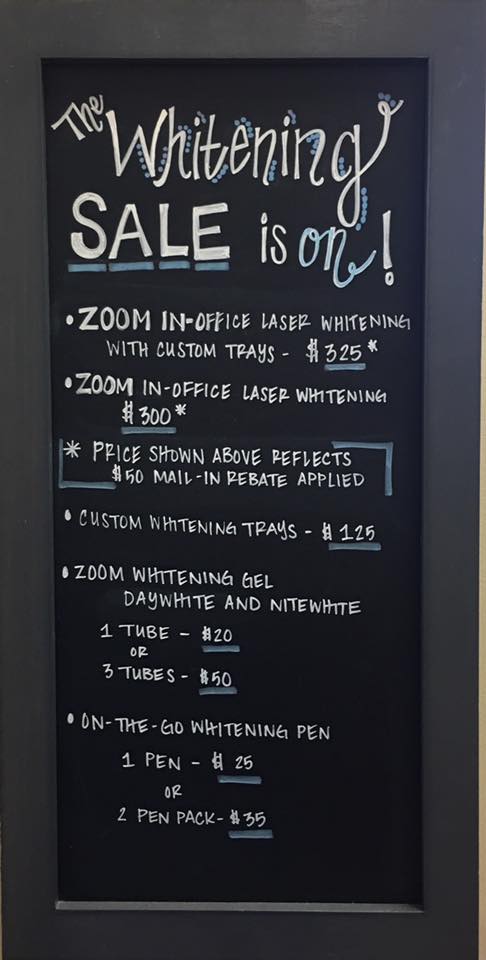 The
Whitening
SALE is on!
• ZOOM IN-OFFICE LASER WHITENING
WITH CUSTOM TRAYS - $325*
• ZOOM IN-OFFICE LASER WHITENING
$300*
* PRICE SHOWN ABOVE REFLECTS
$50 MAIL-IN REBATE APPLIED
• CUSTOM WHITENING TRAYS - $125
• ZOOM WHITENING GEL
DAYWHITE AND NITEWHITE
1 TUBE - $20
OR
3 TUBES - $50
• ON-THE-GO WHITENING PEN
1 PEN - $25
OR
2 PEN PACK - $35